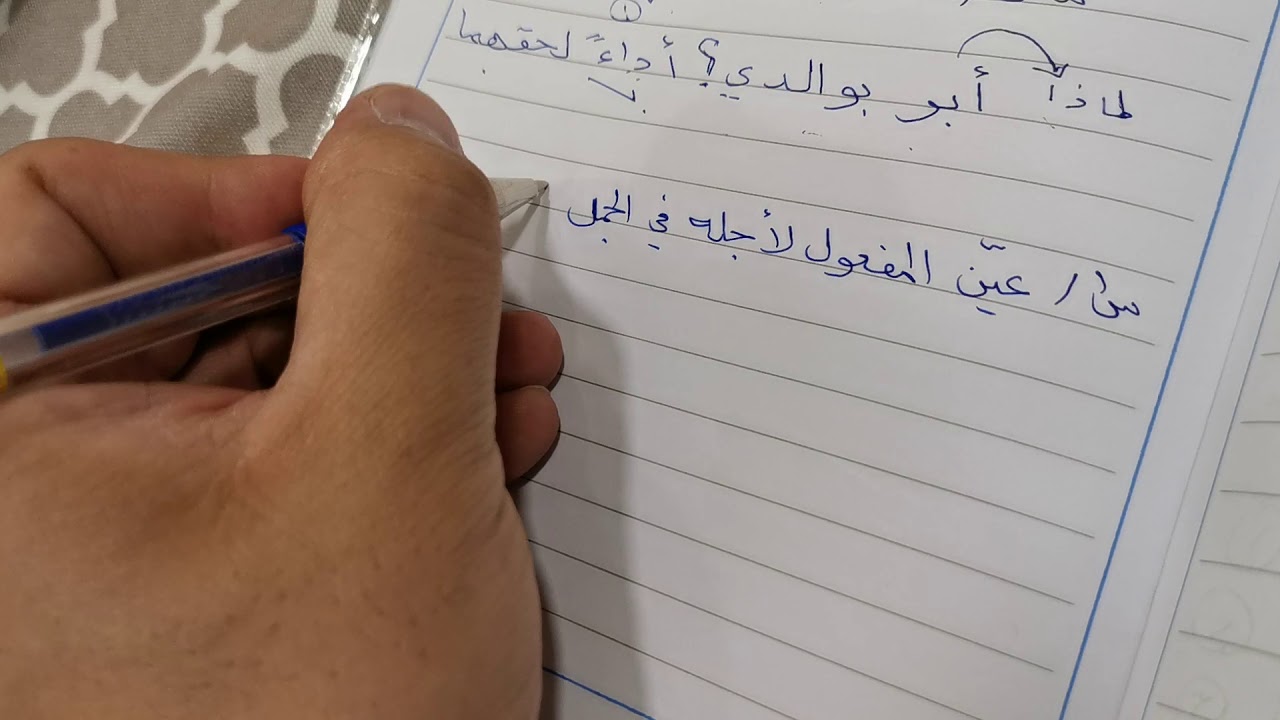 ①
لماذا أبو بوالدي؟ أداءً لحقهما
س١/ عيّن المفعول لأجله في الجمل